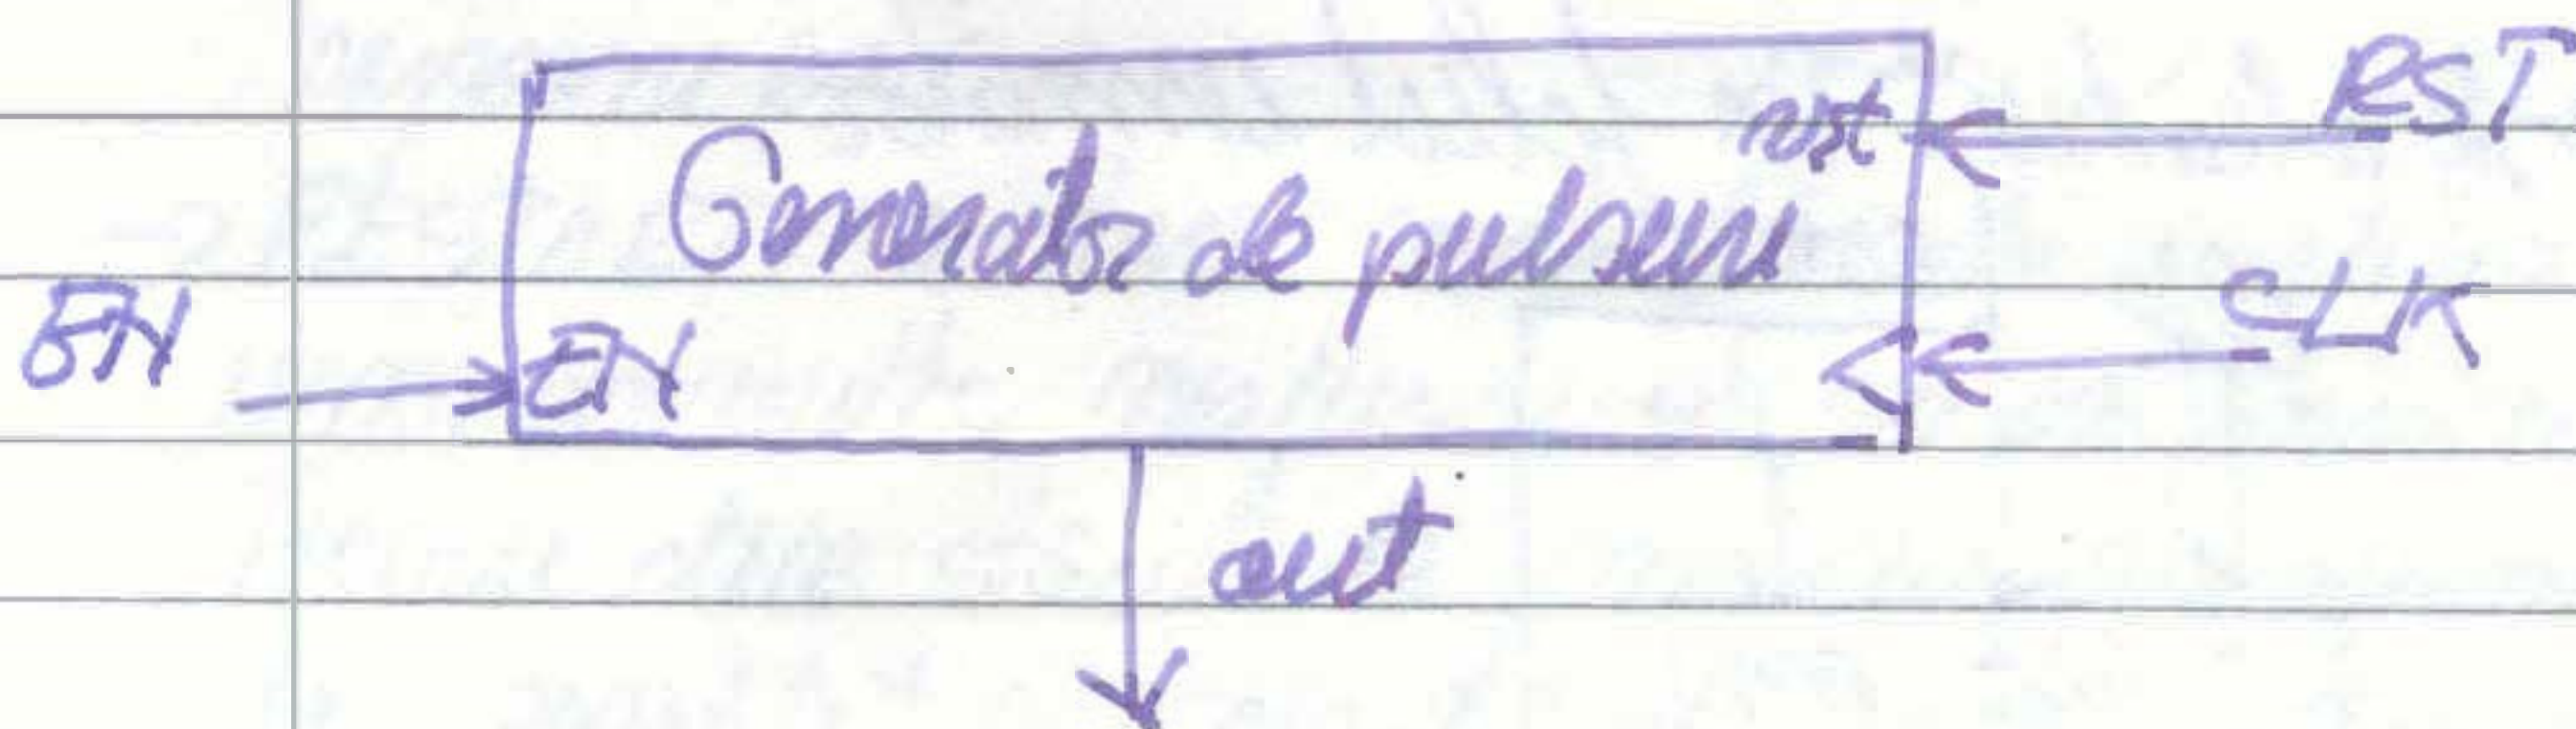 RST
rst
Generator de pulsuri
CLK
EN
EN
out